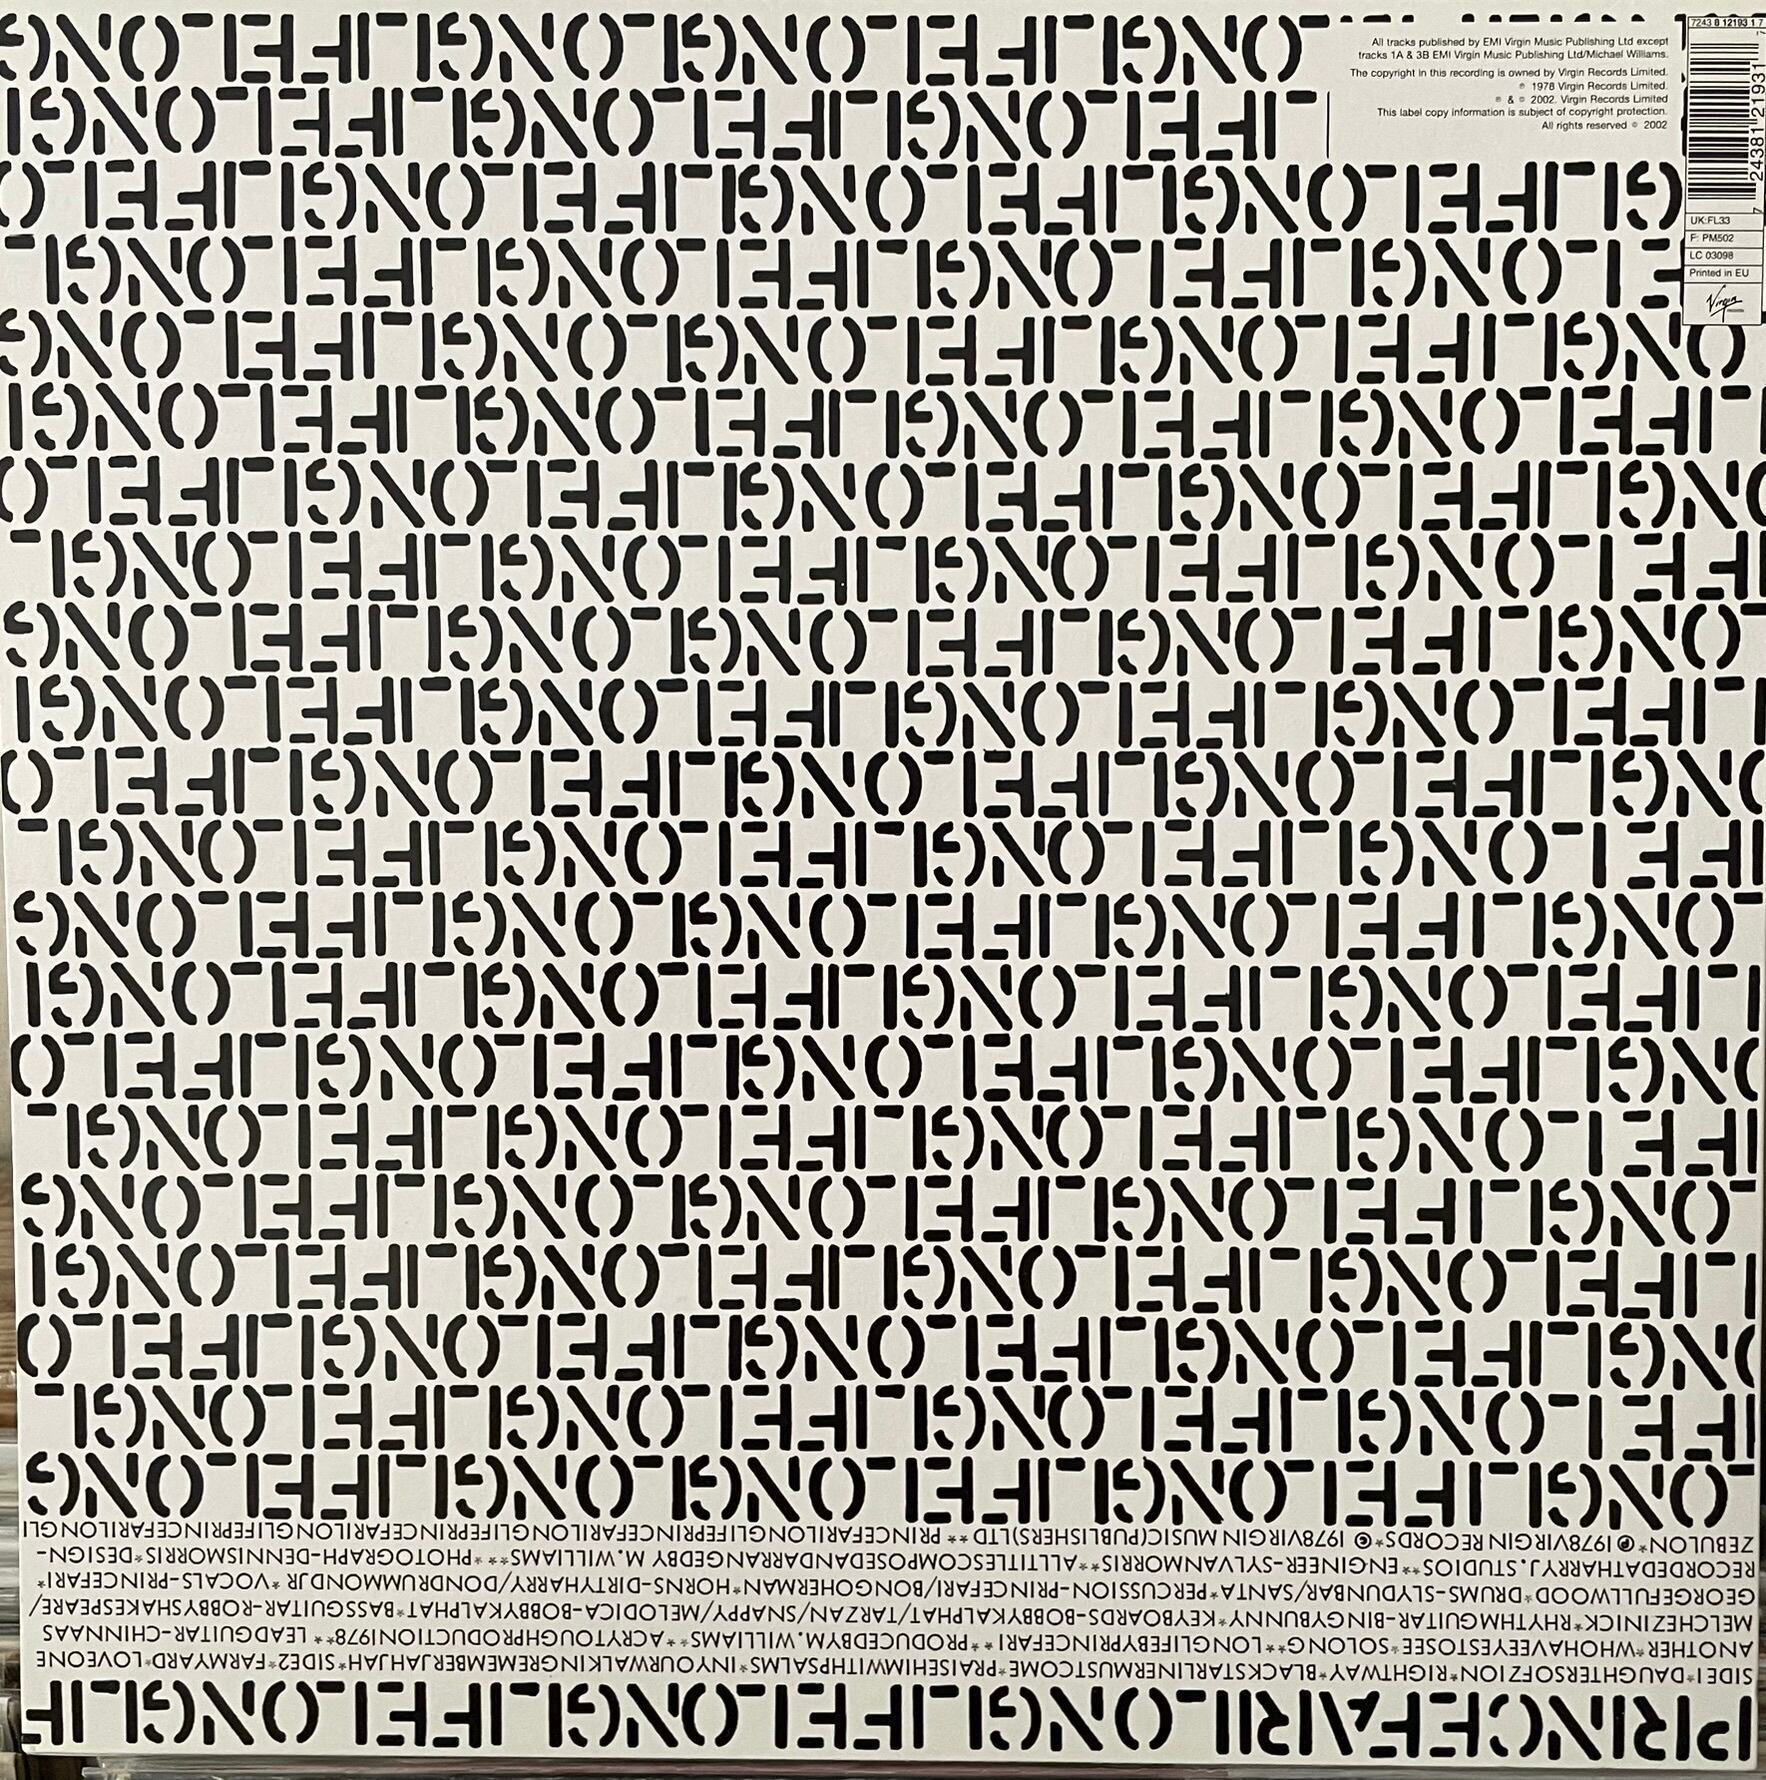 7243 8 12193 1 7
All tracks published by EMI Virgin Music Publishing Ltd except
tracks 1A & 3B EMI Virgin Music Publishing Ltd/Michael Williams.
The copyright in this recording is owned by Virgin Records Limited.
℗ 1978 Virgin Records Limited.
℗ & © 2002. Virgin Records Limited
This label copy information is subject of copyright protection.
All rights reserved © 2002
7 24381 21931 7
UK:FL33
F: PM502
LC 03098
Printed in EU
Virgin
PRINCEFARILONGLIFELONGLIFELONGLIF
SIDE1*DAUGHTERSOFZION*RIGHTWAY*BLACKSTARLINERMUSTCOME*PRAISEHIMWITHPSALMS*INYOURWALKINGREMEMBERJAHJAH*SIDE2*FARMYARD*LOVEONE
ANOTHER*WHOHAVEEYESTOSEE*SOLONG**LONGLIFEBYPRINCEFARI**PRODUCEDBYM.WILLIAMS**ACRYTOUGHPRODUCTION1978**LEADGUITAR-CHINNAAS
MELCHEZINICK*RHYTHMGUITAR-BINGYBUNNY*KEYBOARDS-BOBBYKALPHAT/TARZAN/SNAPPY/MELODICA-BOBBYKALPHAT*BASSGUITAR-ROBBYSHAKESPEARE/
GEORGEFULLWOOD*DRUMS-SLYDUNBAR/SANTA*PERCUSSION-PRINCEFARI/BONGOHERMAN*HORNS-DIRTYHARRY/DONDRUMMONDJR*VOCALS-PRINCEFARI*
RECORDEDATHARRYJ.STUDIOS**ENGINEER-SYLVANMORRIS**ALLTITLESCOMPOSEDANDARRANGEDBY M.WILLIAMS***PHOTOGRAPH-DENNISMORRIS*DESIGN-
ZEBULON*℗1978VIRGIN RECORDS*©1978VIRGIN MUSIC(PUBLISHERS)LTD** PRINCEFARILONGLIFEPRINCEFARILONGLIFEPRINCEFARILONGLIFEPRINCEFARILONGLI
LONGLIFELONGLONGLIFELONGLIFELONG
IFELONGLIFELONGLIFELONGLIFELONGL
ONGLIFELONGLIFELONGLIFELONGLIFELO
LIFELONGLIFELONGLIFELONGLIFELONG
LONGLIFELONGLIFELONGLONGLIFELONG
IFELONGLIFELONGLIFELONGLIFELONGL
ONGLIFELONGLIFELONGLIFELONGLIFELO
LIFELONGLIFELONGLIFELONGLIFELONG
LONGLIFELONGLIFELONGLONGLIFELONG
IFELONGLIFELONGLIFELONGLIFELONGL
ONGLIFELONGLIFELONGLIFELONGLIFELO
LIFELONGLIFELONGLIFELONGLIFELONG
LONGLIFELONGLIFELONGLONGLIFELONG
IFELONGLIFELONGLIFELONGLIFELONGL
ONGLIFELONGLIFELONGLIFELONGLIFELO
LIFELONGLIFELONGLIFELONGLIFELONG
LONGLIFELONGLIFELONGLONGLIFELONG
FELONGLIFELONGLIFELONGLIFELONGL
GLIFELONGLIFELONGLIFELONGLIFELO
LIFELONGLIFELONGLIFELONG
LONGLIFELONGLONGLIFELONG